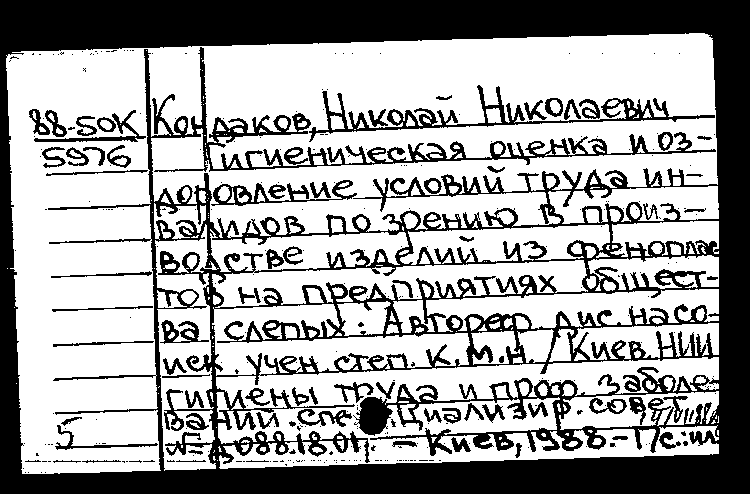 88-50К Кондаков, Николай Николаевич.
5976 Гигиеническая оценка и оз-
доровление условий труда ин-
валидов по зрению в произ-
водстве изделий из феноплас
тов на предприятиях общест-
ва слепых: Автореф. дис. на со-
иск. учен. степ. к.м.н. / Киев. НИИ
гигиены труда и проф. заболе-
ваний. специализир. совет
5 № Д 088.18.01. – Киев, 1988. – 17с.: ил